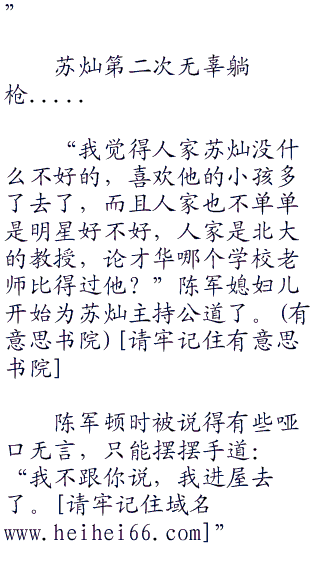 ”
苏灿第二次无辜躺
枪.....
“我觉得人家苏灿没什
么不好的，喜欢他的小孩多
了去了，而且人家也不单单
是明星好不好，人家是北大
的教授，论才华哪个学校老
师比得过他？”陈军媳妇儿
开始为苏灿主持公道了。(有
意思书院)[请牢记住有意思
书院]
陈军顿时被说得有些哑
口无言，只能摆摆手道：
“我不跟你说，我进屋去
了。[请牢记住域名
www.heihei66.com]”